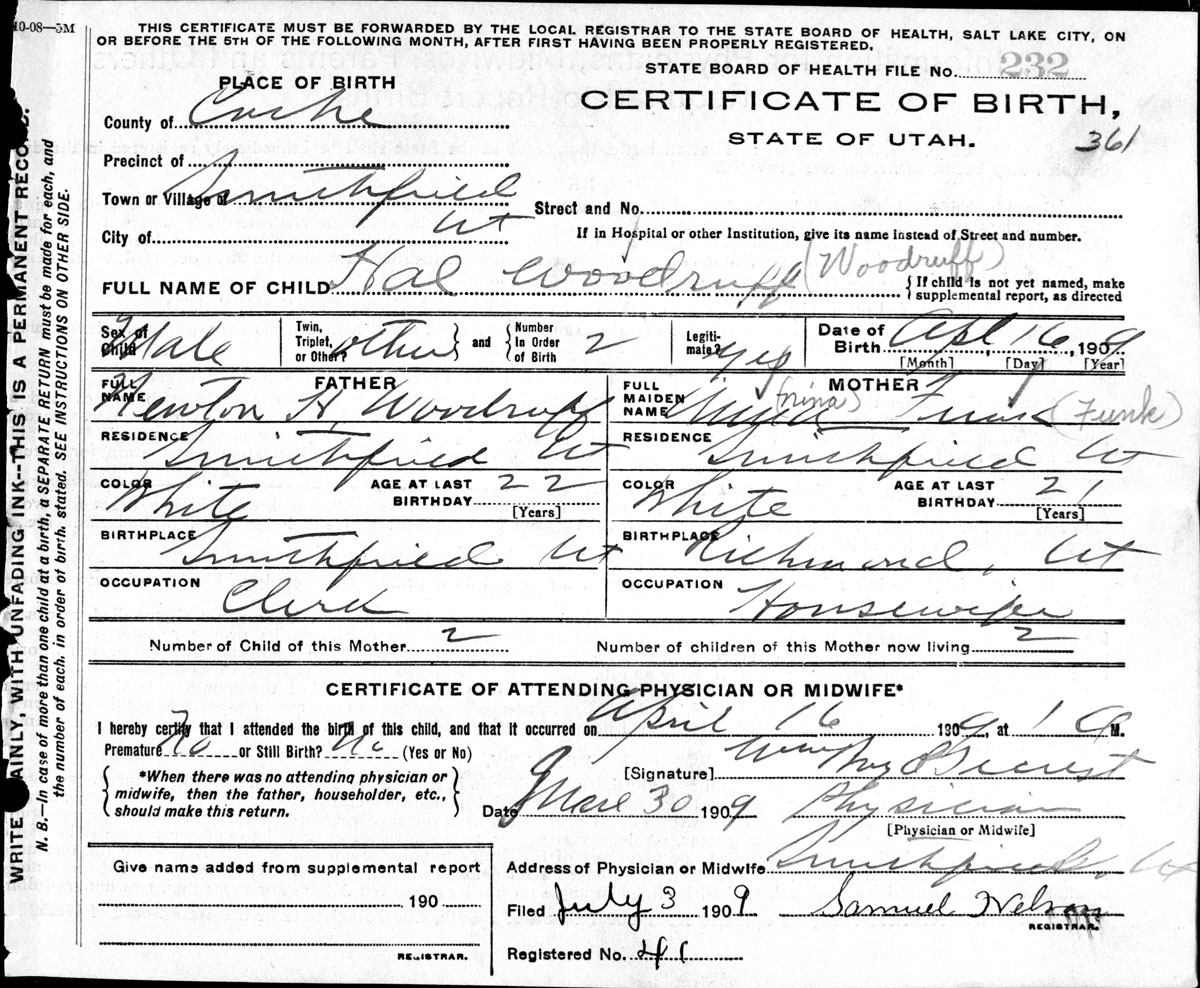 10-08—5M
THIS CERTIFICATE MUST BE FORWARDED BY THE LOCAL REGISTRAR TO THE STATE BOARD OF HEALTH, SALT LAKE CITY, ON
OR BEFORE THE 5TH OF THE FOLLOWING MONTH, AFTER FIRST HAVING BEEN PROPERLY REGISTERED.
STATE BOARD OF HEALTH FILE No. 232
PLACE OF BIRTH
CERTIFICATE OF BIRTH,
STATE OF UTAH.
361
County of Cache
Precinct of
Town or Village of Smithfield
Street and No.
City of Ut
If in Hospital or other Institution, give its name instead of Street and number.
FULL NAME OF CHILD Hal Woodruff (Woodruff) { If child is not yet named, make
supplemental report, as directed
Sex of Child Male
Twin, Triplet, or Other? other } and { Number In Order of Birth 2
Legiti-mate? Yes
Date of Birth Apl 16, 1909
[Month] [Day] [Year]
FATHER
FULL NAME Newton H. Woodruff
RESIDENCE Smithfield Ut
COLOR White AGE AT LAST BIRTHDAY 22 [Years]
BIRTHPLACE Smithfield Ut
OCCUPATION Clerk
MOTHER
FULL MAIDEN NAME (nina) Funk (Funk)
RESIDENCE Smithfield Ut
COLOR White AGE AT LAST BIRTHDAY 21 [Years]
BIRTHPLACE Richmond, Ut
OCCUPATION Housewife
Number of Child of this Mother 2 Number of children of this Mother now living 2
CERTIFICATE OF ATTENDING PHYSICIAN OR MIDWIFE*
I hereby certify that I attended the birth of this child, and that it occurred on April 16 1909, at 1 a M.
Premature No or Still Birth? No (Yes or No)
{ *When there was no attending physician or
midwife, then the father, householder, etc.,
should make this return. }
[Signature]
Date 30 1909 Physician
[Physician or Midwife]
Give name added from supplemental report
190
REGISTRAR.
Address of Physician or Midwife Smithfield, Ut
Filed July 3 1909 Samuel Nelson
REGISTRAR.
Registered No. 41
WRITE PLAINLY, WITH UNFADING INK--THIS IS A PERMANENT RECORD.
N. B.—In case of more than one child at a birth, a SEPARATE RETURN must be made for each, and
the number of each, in order of birth, stated. SEE INSTRUCTIONS ON OTHER SIDE.